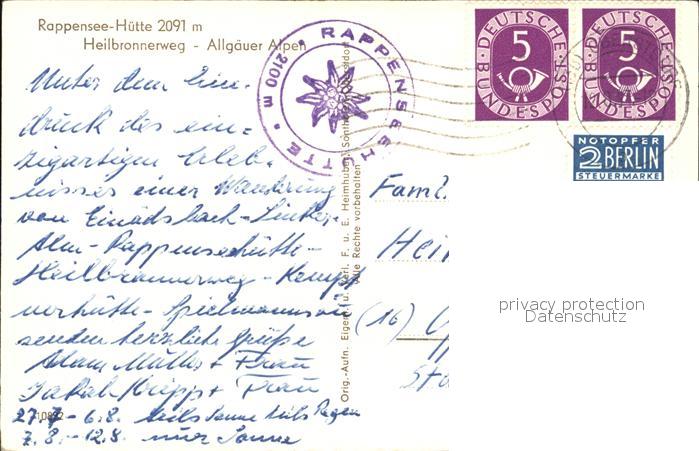 Rappensee-Hütte 2091 m
Heilbronnerweg - Allgäuer Alpen
RAPPENSEEHÜTTE
2100 m
DEUTSCHE BUNDESPOST
5
DEUTSCHE BUNDESPOST
5
NOTOPFER
2 BERLIN
STEUERMARKE
Unter dem Ein-
druck des ein-
zigartigen Erleb-
nisses einer Wanderung
von Einödsbach-Linkers
Alm-Rappenseehütte-
Heilbronnerweg-Kempt
nerhütte-Spielmannsau
senden herzliche Grüße
Adam Müller + Frau
Jakob Kripp + Frau
27.7.-6.8. teils Sonne teils Regen
7.8.-12.8. nur Sonne
Orig.-Aufn. Eigent. u. Verl. F. u. E. Heimhuber, Sonthofen
Alle Rechte vorbehalten
Fami
Hei
(16)
privacy protection
Datenschutz